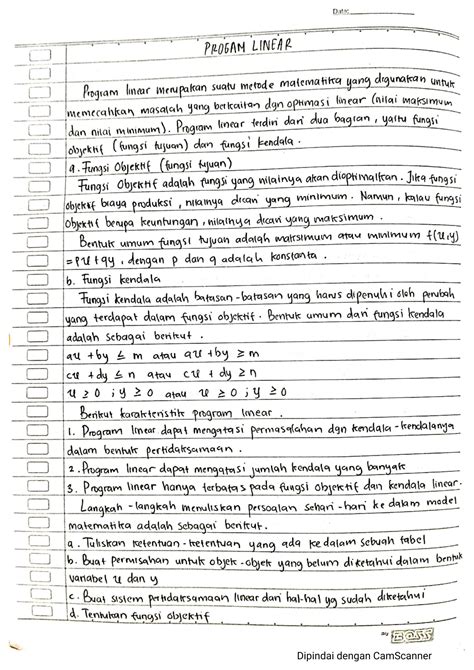 Date:
PROGAM LINEAR
Program linear merupakan suatu metode matematika yang digunakan untuk
memecahkan masalah yang berkaitan dgn optimasi linear (nilai maksimum
dan nilai minimum). Program linear terdiri dari dua bagian, yaitu fungsi
objektif (fungsi tujuan) dan fungsi kendala.
a. Fungsi Objektif (fungsi tujuan)
Fungsi Objektif adalah fungsi yang nilainya akan dioptimalkan. Jika fungsi
objektif biaya produksi, nilainya dicari yang minimum. Namun, kalau fungsi
Objektif berupa keuntungan, nilainya dicari yang maksimum.
Bentuk umum fungsi tujuan adalah maksimum atau minimum f(x,y)
= px + qy, dengan p dan q adalah konstanta.
b. Fungsi kendala
Fungsi kendala adalah batasan-batasan yang harus dipenuhi oleh perubah
yang terdapat dalam fungsi objektif. Bentuk umum dari fungsi kendala
adalah sebagai berikut.
ax + by ≤ m atau ax + by ≥ m
cx + dy ≤ n atau cx + dy ≥ n
x ≥ 0 ; y ≥ 0 atau x ≥ 0 ; y ≥ 0
Berikut karakteristik program linear.
1. Program linear dapat mengatasi permasalahan dgn kendala-kendalanya
dalam bentuk pertidaksamaan.
2. Program linear dapat mengatasi jumlah kendala yang banyak
3. Program linear hanya terbatas pada fungsi objektif dan kendala linear.
Langkah-langkah menuliskan persoalan sehari-hari ke dalam model
matematika adalah sebagai berikut.
a. Tuliskan ketentuan-ketentuan yang ada ke dalam sebuah tabel
b. Buat permisahan untuk objek-objek yang belum diketahui dalam bentuk
variabel x dan y
c. Buat sistem pertidaksamaan linear dari hal-hal yg sudah diketahui
d. Tentukan fungsi objektif
by BOSS
Dipindai dengan CamScanner